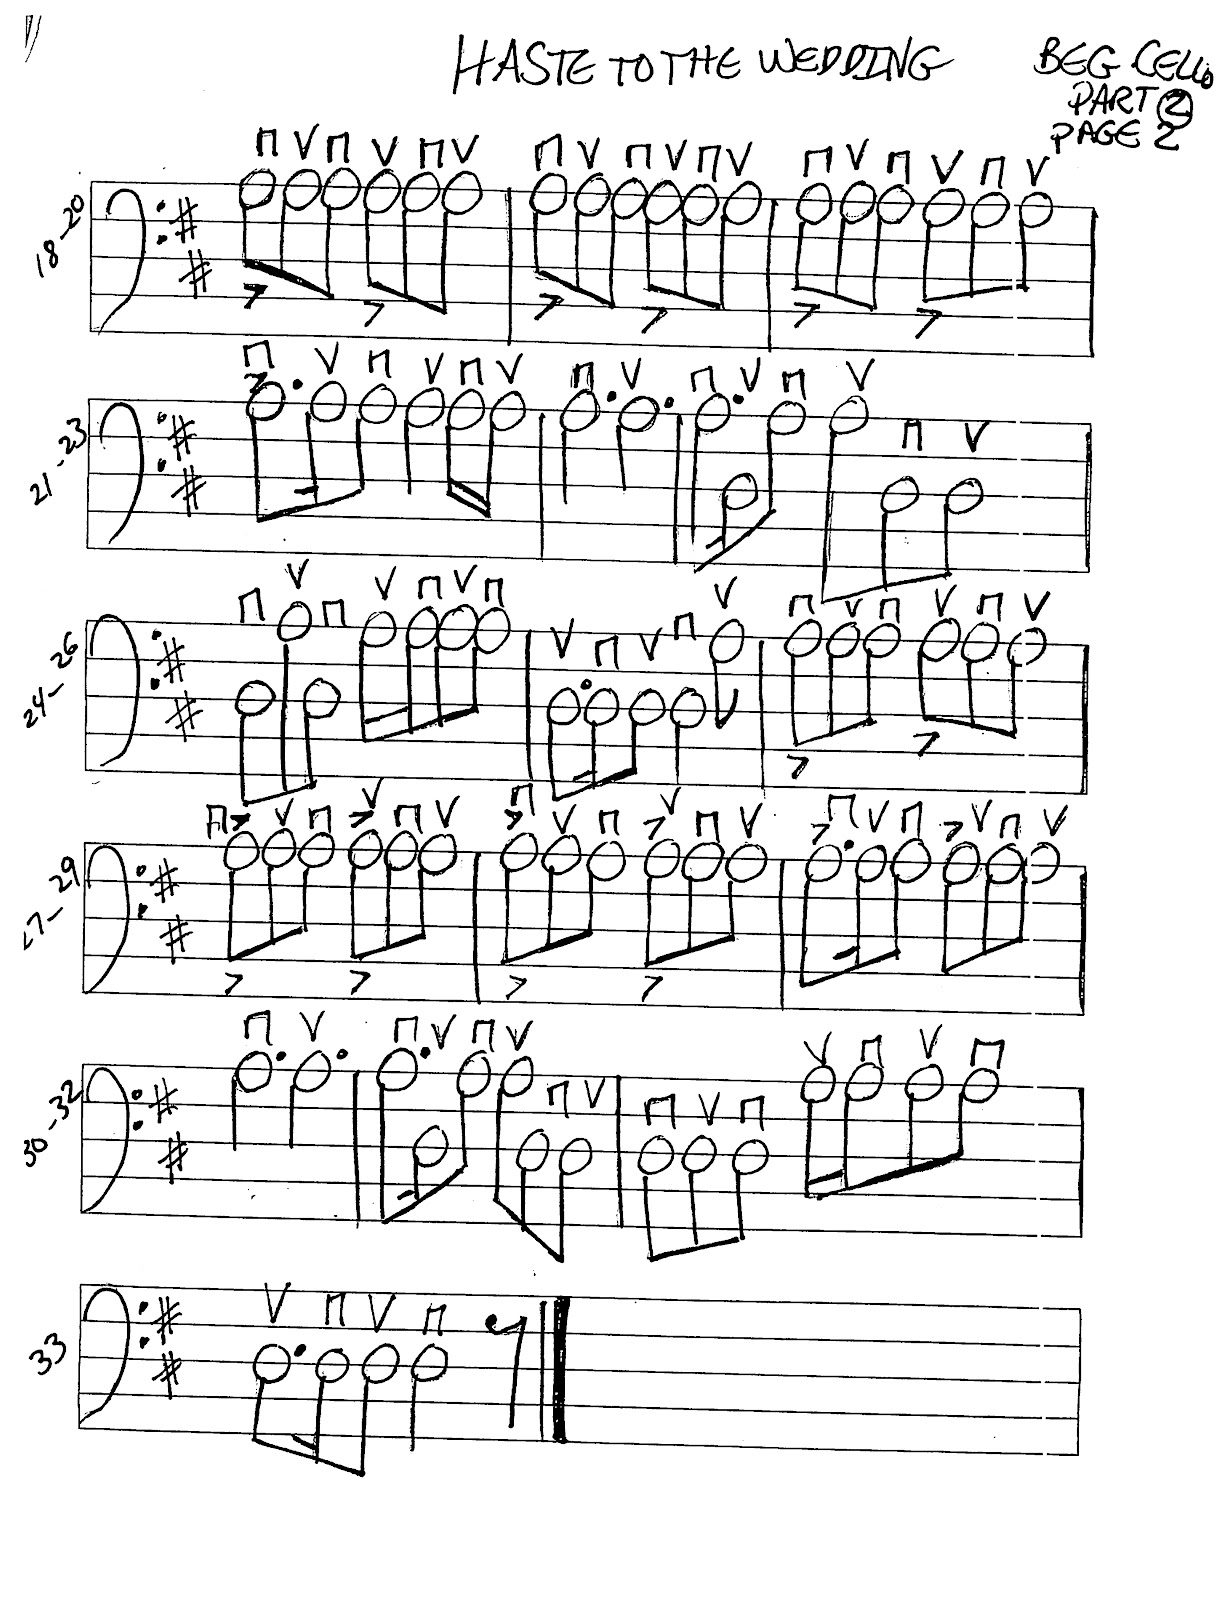 HASTE TO THE WEDDING
BEG CELLO
PART 2
PAGE 2
18-20
21-23
24-26
27-29
30-32
33